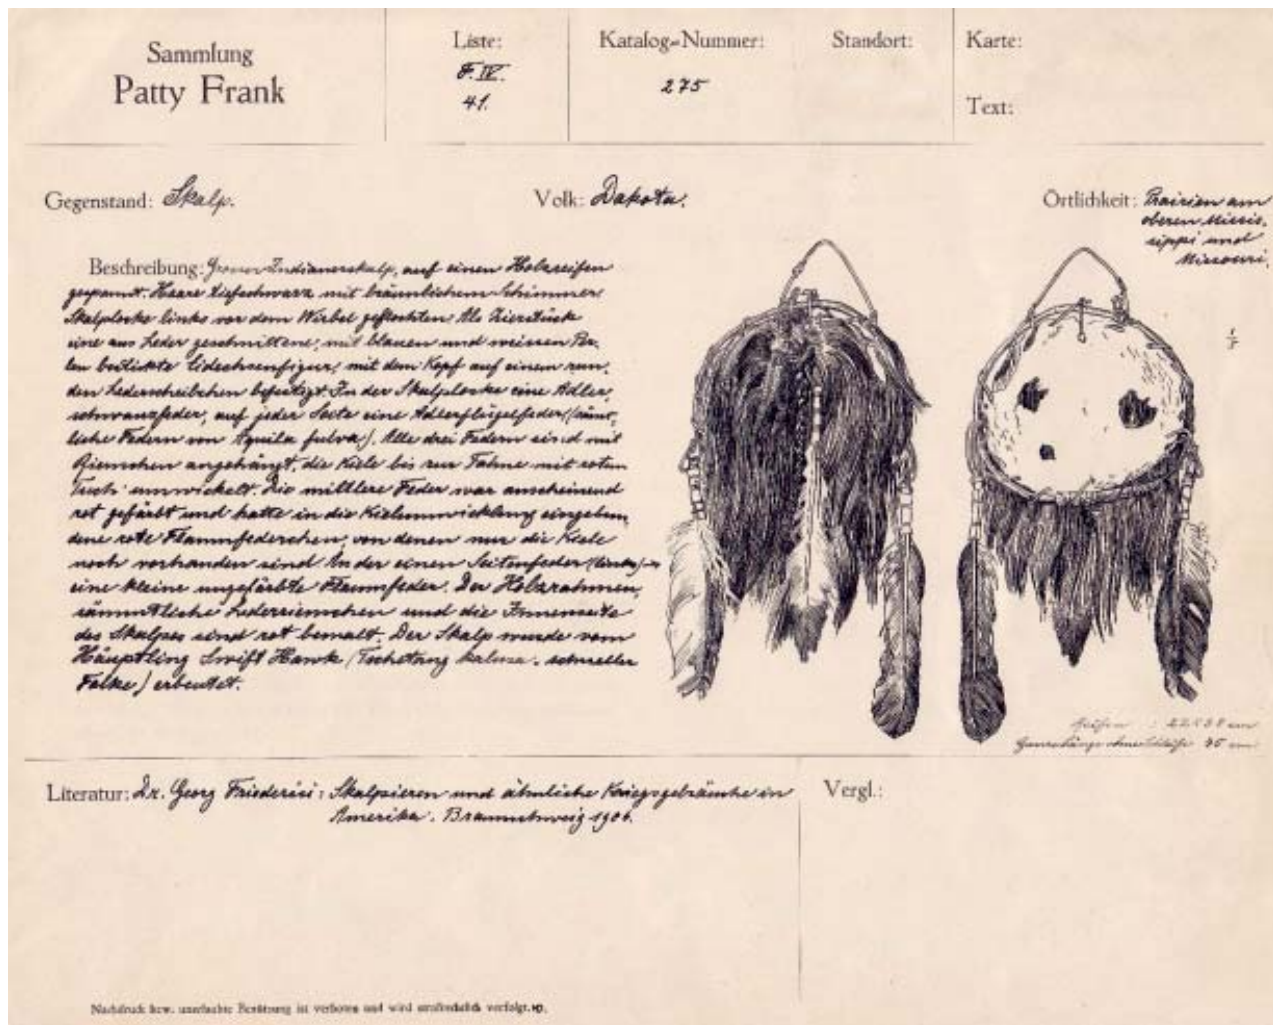 Sammlung
Patty Frank
Liste:
F. IV.
41.
Katalog=Nummer:
275
Standort:
Karte:
Text:
Gegenstand: Skalp.
Volk: Dakota.
Örtlichkeit: Prairien am
oberen Missis-
sippi und
Missouri.
Beschreibung: Indianerskalp, auf einen Holzreifen
gespannt. Haare tiefschwarz mit bräunlichem Schimmer.
Skalplocke links vor dem Wirbel geflochten. Als Zierstück
eine aus Leder geschnittene, mit blauen und weissen Per-
len bestickte Eidechsenfigur, mit dem Kopf auf einem run-
den Lederscheibchen befestigt. In der Skalplocke eine Adler-
schwanzfeder, auf jeder Seite eine Adlerflügelfeder, (sämt-
liche Federn von Aquila fulva). Alle drei Federn sind mit
Riemchen angehängt, die Kiele bis zur Fahne mit rotem
Tuch umwickelt. Die mittlere Feder war anscheinend
rot gefärbt und hatte in die Kielumwicklung eingebun-
dene rote Flaumfederchen, von denen nur die Kiele
noch vorhanden sind. An der einen Seitenfeder (links)
eine kleine ungefärbte Flaumfeder. Der Holzrahmen,
sämmtliche Lederriemchen und die Innenseite
des Skalpes sind rot bemalt. Der Skalp wurde vom
Häuptling Swift Hawk (Tschetang - schneller
Falke) erbeutet.
Reifen : cm
Ganze Länge ohne Schleife 45 cm
Literatur: Dr. Georg Friederici: Skalpieren und ähnliche Kriegsgebräuche in
Amerika. Braunschweig 1906.
Vergl.:
Nachdruck bzw. unerlaubte Benützung ist verboten und wird strafrechtlich verfolgt.